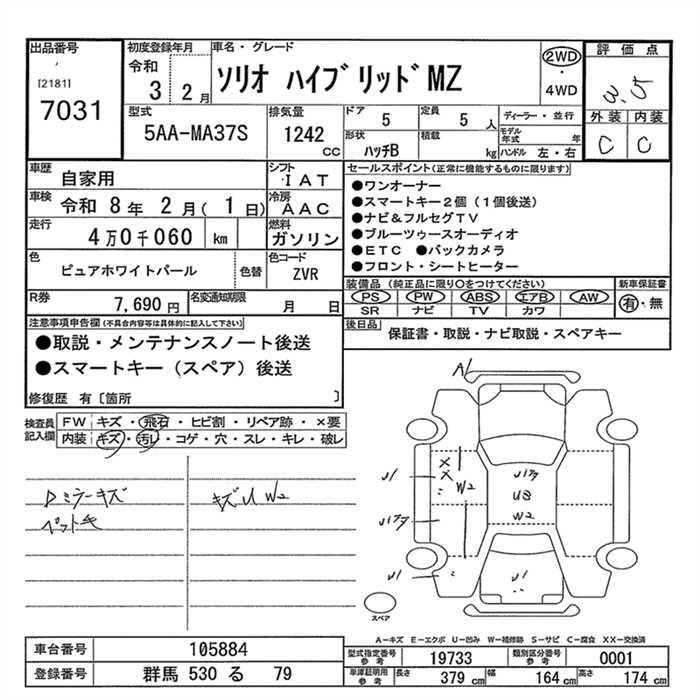 出品番号
[2181]
7031
初度登録年月
令和
3 2月
車名・グレード
ソリオ ハイブリッドMZ
2WD
・
4WD
評価点
3.5
外装 内装
C C
型式
5AA-MA37S
排気量
1242
cc
ドア
5
定員
5 人
ディーラー・並行
形状
ハッチB
積載
kg
モデル年式 年
ハンドル 左・右
車歴
自家用
シフト
IAT
車検
令和 8年 2月( 1日)
冷房
AAC
走行
4万0千060 km
燃料
ガソリン
色
ピュアホワイトパール
色替
色コード
ZVR
R券
7,690円
名変通知期限
月 日
セールスポイント(正常に機能するものに限ります)
●ワンオーナー
●スマートキー2個(1個後送)
●ナビ&フルセグTV
●ブルーツゥースオーディオ
●ETC ●バックカメラ
●フロント・シートヒーター
装備品(純正品に限り○をつけてください)
PS PW ABS エアB AW
SR ナビ TV カワ
新車保証書
有・無
後日品
保証書・取説・ナビ取説・スペアキー
注意事項申告欄(不具合内容等は具体的に記入して下さい)
●取説・メンテナンスノート後送
●スマートキー(スペア)後送
修復歴 有〔箇所 〕
検査員記入欄
FW キズ・飛石・ヒビ割・リペア跡・×要
内装 キズ・汚レ・コゲ・穴・スレ・キレ・破レ
Dミラーキズ
ペット毛
キズU W2
A1
××
U1
W2
U1アタ
U1
U1アタ
U3
W2
U1
スペア
A―キズ E―エクボ U―凹み W―補修跡 S―サビ C―腐食 XX―交換済
車台番号
105884
登録番号
群馬 530 る 79
型式指定番号 参考
19733
類別区分番号 参考
0001
車庫証明用 参考
長さ 379 cm
幅 164 cm
高さ 174 cm